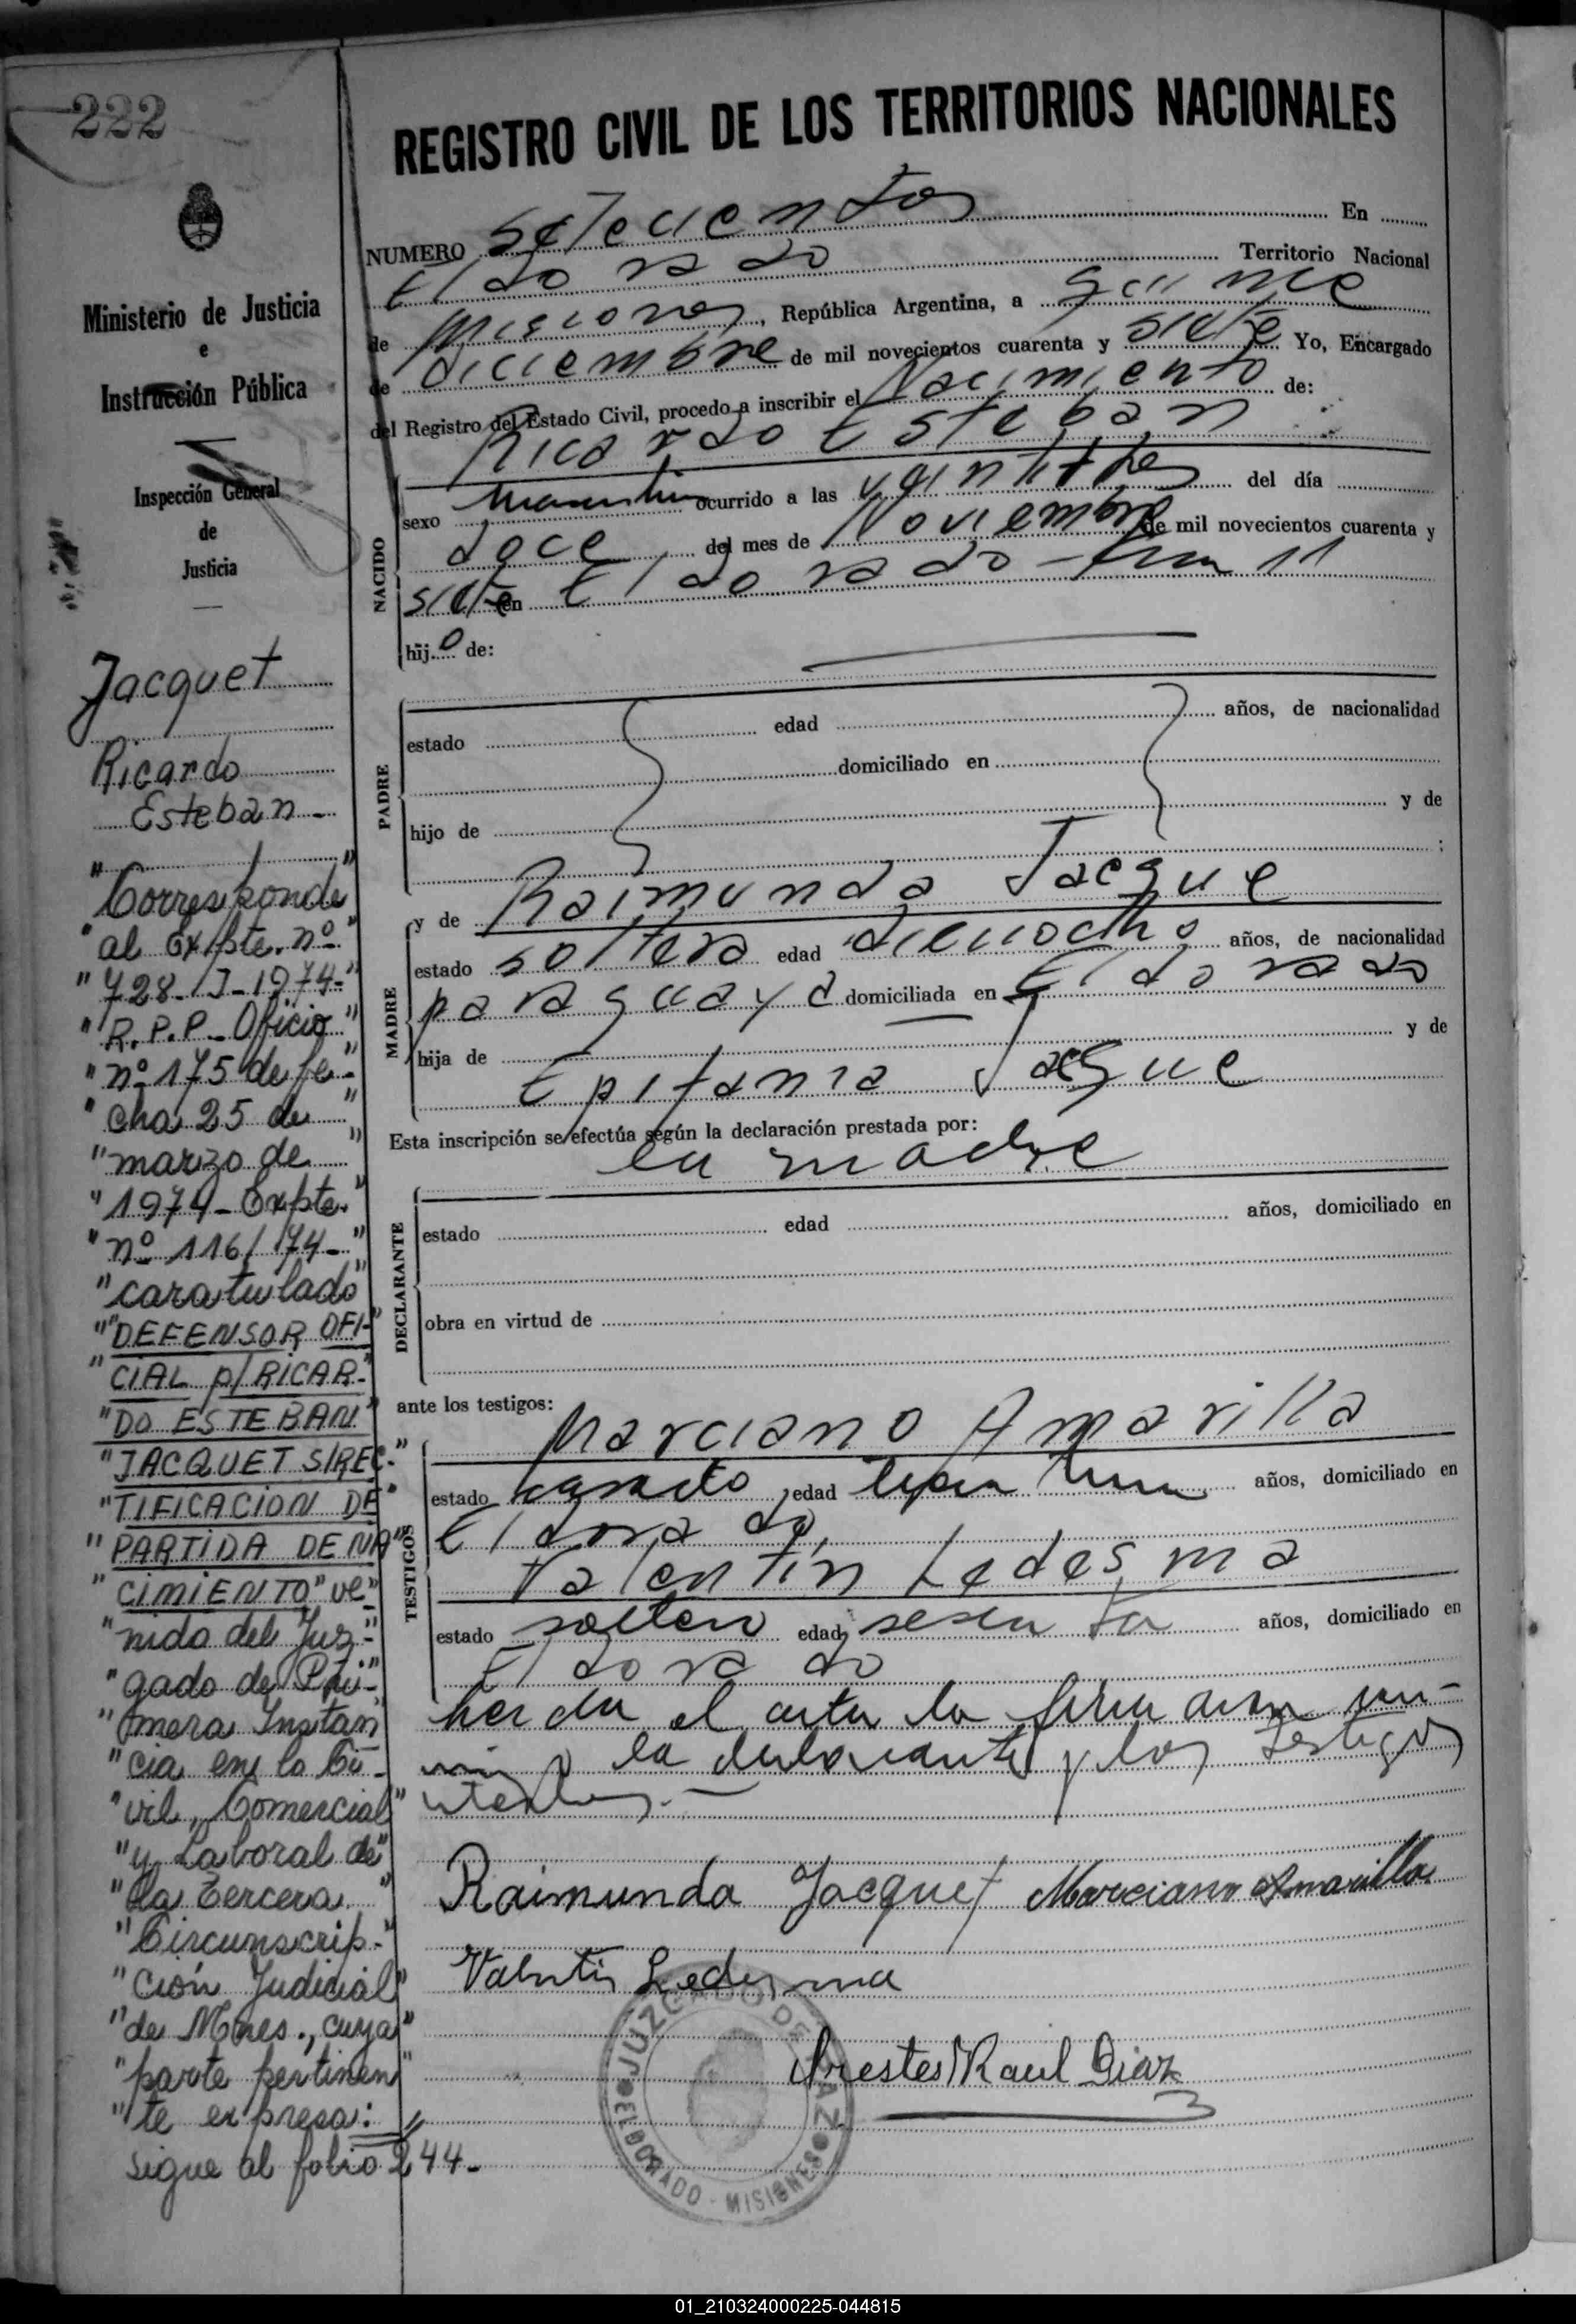 222
Ministerio de Justicia
e
Instrucción Pública
Inspección General
de
Justicia
Jacquet
Ricardo
Esteban -
"Corresponde"
"al Expte. nº"
"728-J-1974-"
"R.P.P. - Oficio"
"nº 175 de fe-"
"cha 25 de"
"marzo de"
"1974 - Expte."
"nº 116/74-"
"caratulado"
""DEFENSOR OFI-"
"CIAL p/RICAR-"
"DO ESTEBAN"
"JACQUET S/REC-"
"TIFICACION DE"
"PARTIDA DE NA"
"CIMIENTO" ve-"
"nido del Juz-"
"gado de Pri-"
"mera Instan"
"cia en lo Ci-"
"vil, Comercial"
"y Laboral de"
"la Tercera"
"Circunscrip-"
"ción Judicial"
"de Mnes., cuya"
"parte pertinen"
"te expresa:"
sigue al folio 244-
REGISTRO CIVIL DE LOS TERRITORIOS NACIONALES
NUMERO Setecientos En
Eldorado Territorio Nacional
de Misiones, República Argentina, a quince
de diciembre de mil novecientos cuarenta y siete Yo, Encargado
del Registro del Estado Civil, procedo a inscribir el Nacimiento de:
Ricardo Esteban
NACIDO
sexo masculino ocurrido a las veintitres del día
doce del mes de Noviembre de mil novecientos cuarenta y
siete en Eldorado - km 11
hijo de:
PADRE
estado edad años, de nacionalidad
domiciliado en
hijo de y de
;
MADRE
y de Raimunda Jacque
estado soltera edad dieciocho años, de nacionalidad
paraguaya domiciliada en Eldorado
hija de y de
Epifania Jacque
Esta inscripción se efectúa según la declaración prestada por:
la madre
DECLARANTE
estado edad años, domiciliado en
obra en virtud de
ante los testigos:
TESTIGOS
Marciano Amarilla
estado casado edad años, domiciliado en
Eldorado,
Valentin Ledesma
estado soltero edad sesenta años, domiciliado en
Eldorado
el acta la firman
la declarante y los testigos
Raimunda Jacquet Marciano Amarilla
Valentin Ledesma
Orestes Raul Diaz
JUZGADO DE PAZ
ELDORADO - MISIONES
01_210324000225-044815